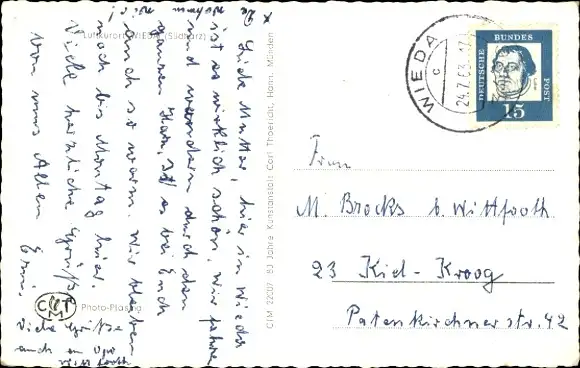 Luftkurort WIEDA (Südharz)
Liebe Mutter, hier in Wieda
ist es wirklich schön. Wir fahren
und wandern durch den
ganzen Harz. Ist es bei Euch
auch so warm. Wir bleiben
noch bis Montag hier.
Viele herzliche Grüße
von uns Allen Erni.
Viele Grüße
auch an
Wittfooth
CTM
Photo-Plasing
CTM 22007 80 Jahre Kunstanstalt Carl Thoericht, Hann. Münden
WIEDA
c
24.7.63
DEUTSCHE
BUNDES
POST
15
Frau
M. Brocks b. Wittfooth
23 Kiel-Kroog
Patenkirchnerstr. 42